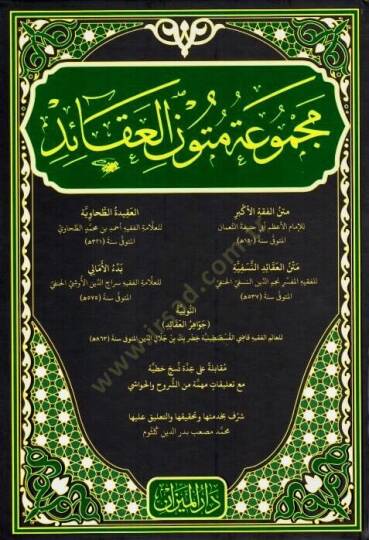 مجموعة متون العقائد
متن الفقه الأكبر
للإمام الأعظم أبي حنيفة النعمان
المتوفى سنة (١٥٠هـ)
العقيدة الطحاوية
للعلامة الفقيه أحمد بن محمد الطحاوي
المتوفى سنة (٣٢١هـ)
متن العقائد النسفية
للفقيه المفسر نجم الدين النسفي الحنفي
المتوفى سنة (٥٣٧هـ)
بدء الأمالي
للعلامة الفقيه سراج الدين الأوشي الحنفي
المتوفى سنة (٥٧٥هـ)
النونية
(جواهر العقائد)
للعالم الفقيه قاضي القسطنطينية خضر بك بن جلال الدين المتوفى سنة (٨٦٣هـ)
مقابلة على عدة نسخ خطية
مع تعليقات مهمة من الشروح والحواشي
شرف بخدمتها وتحقيقها والتعليق عليها
محمد مصعب بدر الدين كلثوم
دار الميراث
www.irsad.com.tr